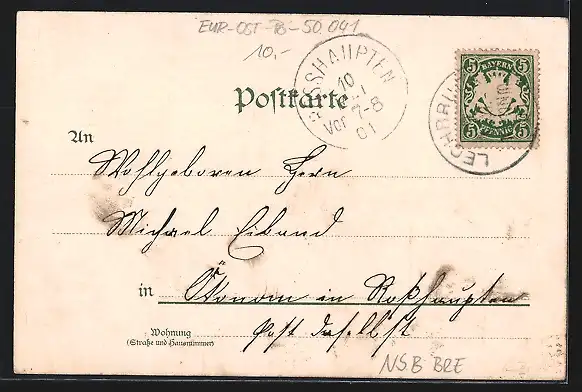 EUR-OST-B-50.041
10,-
ROSSHAUPTEN
10
Vor 7-8
01
BAYERN
5 5
5 PFENNIG 5
LECHBRUCK
Postkarte
An
Wohlgeboren Herrn
Michael Eiband
in Ökonom in Roßhaupten
Post daselbst
Wohnung
(Straße und Hausnummer)
NSB BRE